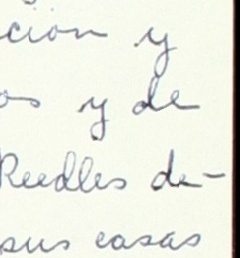 cion y
os y de
Reedles de-
sus casas